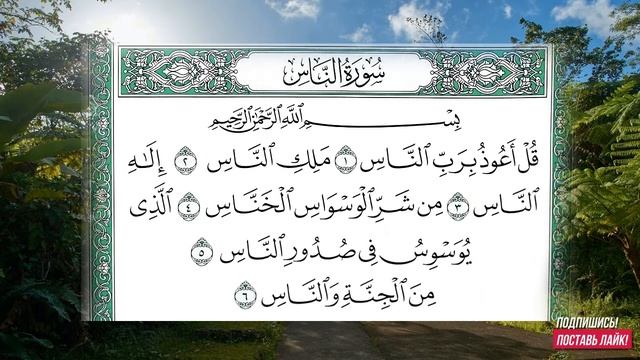 سُورَةُ النَّاسِ
بِسْمِ ٱللَّهِ ٱلرَّحْمَٰنِ ٱلرَّحِيمِ
قُلْ أَعُوذُ بِرَبِّ ٱلنَّاسِ ١ مَلِكِ ٱلنَّاسِ ٢ إِلَٰهِ
ٱلنَّاسِ ٣ مِن شَرِّ ٱلْوَسْوَاسِ ٱلْخَنَّاسِ ٤ ٱلَّذِى
يُوَسْوِسُ فِى صُدُورِ ٱلنَّاسِ ٥
مِنَ ٱلْجِنَّةِ وَٱلنَّاسِ ٦
ПОДПИШИСЬ!
ПОСТАВЬ ЛАЙК!